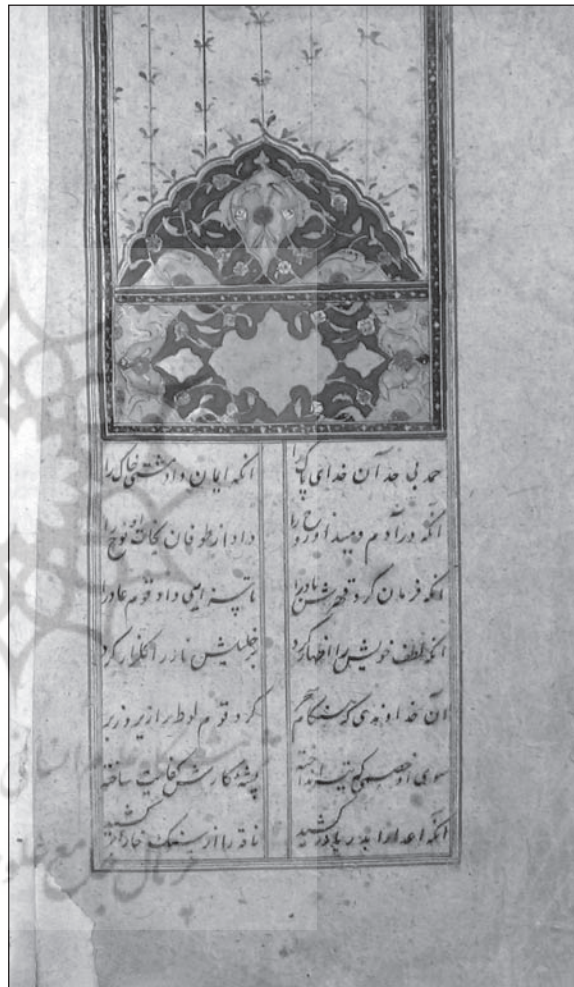 حمد بی حد آن خدای پاک را انکه ایمان داد مشتی خاک را
انکه در آدم دمید او روح را داد از طوفان نجات او نوح را
انکه فرمان کرد قهرش باد را تا سزایی داد قوم عاد را
انکه لطف خویش را اظهار کرد بر خلیلش نار را گلزار کرد
آن خداوندی که هنگام سحر کرد قوم لوط را زیر و زبر
سوی او خصمی که تیر انداخته پشه کارش کفایت ساخته
انکه اعدا را بدریا در کشید ناقه را از سنگ خارا بر کشید